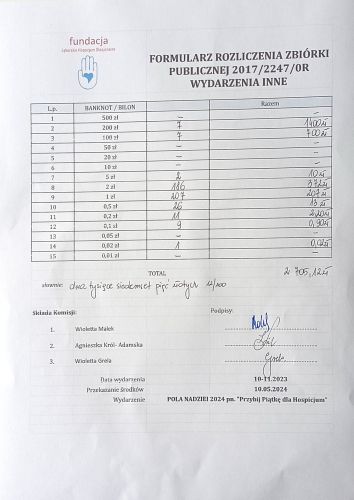 fundacja
Hospicjum Stacjonarne
FORMULARZ ROZLICZENIA ZBIÓRKI
PUBLICZNEJ 2017/2247/OR
WYDARZENIA INNE
L.p. BANKNOT / BILON Razem
1 500 zł – –
2 200 zł 7 1400 zł
3 100 zł 7 700 zł
4 50 zł – –
5 20 zł – –
6 10 zł – –
7 5 zł 2 10 zł
8 2 zł 186 372 zł
9 1 zł 207 207 zł
10 0,5 zł 26 13 zł
11 0,2 zł 11 2,20 zł
12 0,1 zł 9 0,90 zł
13 0,05 zł – –
14 0,02 zł 1 0,02 zł
15 0,01 zł – –
TOTAL 2 705,12 zł
słownie: dwa tysiące siedemset pięć złotych 12/100
Składa Komisji: Podpisy:
1. Wioletta Małek
2. Agnieszka Król- Adamska
3. Wioletta Grela
Data wydarzenia 10-11.2023
Przekazanie środków 10.05.2024
Wydarzenie POLA NADZIEI 2024 pn. "Przybij Piątkę dla Hospicjum"